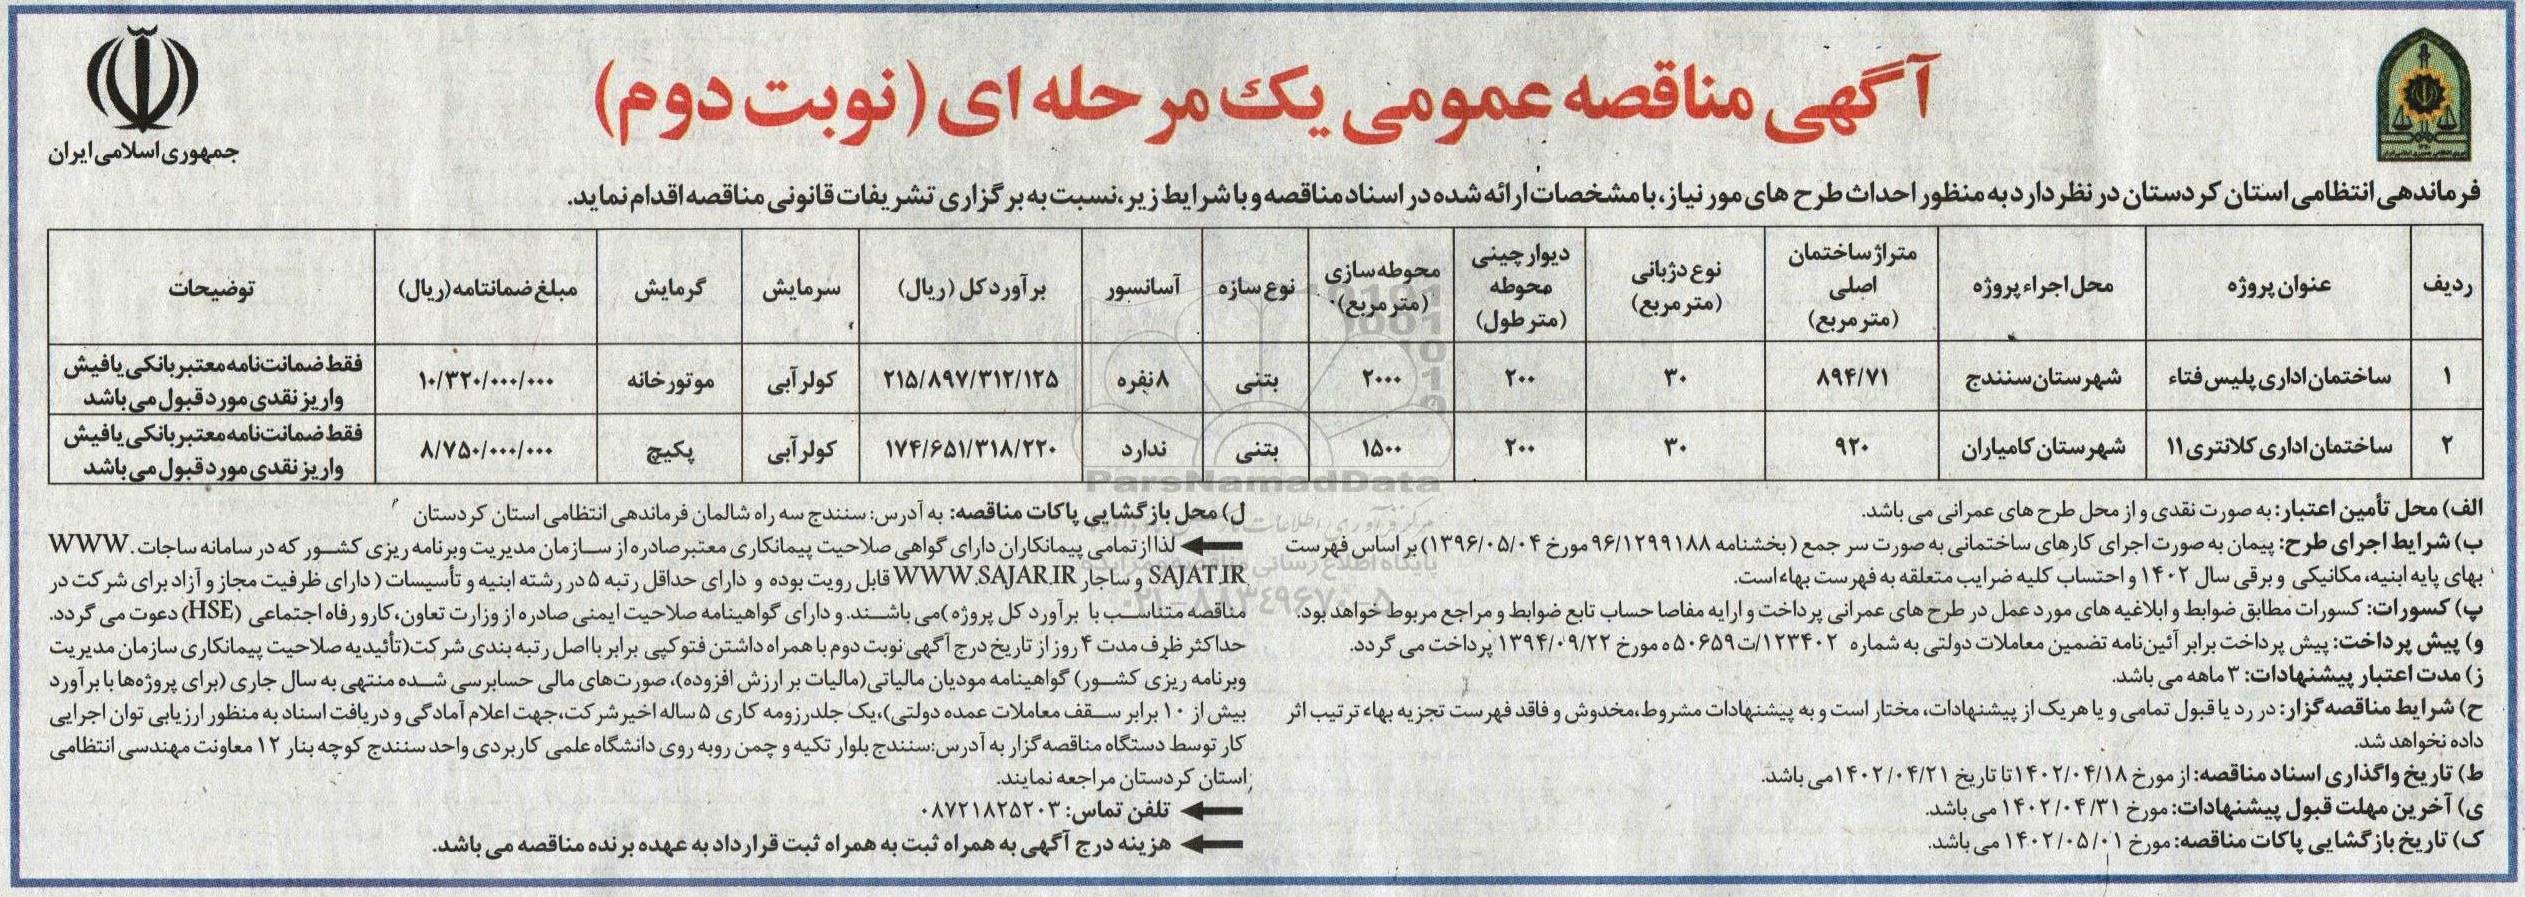 آگهی مناقصه عمومی یک مرحله ای (نوبت دوم)
جمهوری اسلامی ایران
فرماندهی انتظامی استان کردستان در نظر دارد به منظور احداث طرح های مور نیاز، با مشخصات ارائه شده در اسناد مناقصه و با شرایط زیر، نسبت به برگزاری تشریفات قانونی مناقصه اقدام نماید.
ردیف | عنوان پروژه | محل اجراء پروژه | متراژ ساختمان اصلی (متر مربع) | نوع دژبانی (متر مربع) | دیوار چینی محوطه (متر طول) | محوطه سازی (متر مربع) | نوع سازه | آسانسور | برآورد کل (ریال) | سرمایش | گرمایش | مبلغ ضمانتنامه (ریال) | توضیحات
۱ | ساختمان اداری پلیس فتاء | شهرستان سنندج | ۸۹۴/۷۱ | ۳۰ | ۲۰۰ | ۲۰۰۰ | بتنی | ۸ نفره | ۲۱۵/۸۹۷/۳۱۲/۱۲۵ | کولر آبی | موتورخانه | ۱۰/۳۲۰/۰۰۰/۰۰۰ | فقط ضمانت‌نامه معتبر بانکی یا فیش واریز نقدی مورد قبول می باشد
۲ | ساختمان اداری کلانتری ۱۱ | شهرستان کامیاران | ۹۲۰ | ۳۰ | ۲۰۰ | ۱۵۰۰ | بتنی | ندارد | ۱۷۴/۶۵۱/۳۱۸/۲۲۰ | کولر آبی | پکیچ | ۸/۷۵۰/۰۰۰/۰۰۰ | فقط ضمانت‌نامه معتبر بانکی یا فیش واریز نقدی مورد قبول می باشد
الف) محل تأمین اعتبار: به صورت نقدی و از محل طرح های عمرانی می باشد.
ب) شرایط اجرای طرح: پیمان به صورت اجرای کارهای ساختمانی به صورت سر جمع (بخشنامه ۹۶/۱۲۹۹۱۸۸ مورخ ۱۳۹۶/۰۵/۰۴) بر اساس فهرست
بهای پایه ابنیه، مکانیکی و برقی سال ۱۴۰۲ و احتساب کلیه ضرایب متعلقه به فهرست بهاء است.
پ) کسورات: کسورات مطابق ضوابط و ابلاغیه های مورد عمل در طرح های عمرانی پرداخت و ارایه مفاصا حساب تابع ضوابط و مراجع مربوط خواهد بود.
و) پیش پرداخت: پیش پرداخت برابر آئین‌نامه تضمین معاملات دولتی به شماره ۱۲۳۴۰۲/ت۵۰۶۵۹ ه مورخ ۱۳۹۴/۰۹/۲۲ پرداخت می گردد.
ز) مدت اعتبار پیشنهادات: ۳ ماهه می باشد.
ح) شرایط مناقصه‌گزار: در رد یا قبول تمامی و یا هر یک از پیشنهادات، مختار است و به پیشنهادات مشروط، مخدوش و فاقد فهرست تجزیه بهاء ترتیب اثر
داده نخواهد شد.
ط) تاریخ واگذاری اسناد مناقصه: از مورخ ۱۴۰۲/۰۴/۱۸ تا تاریخ ۱۴۰۲/۰۴/۲۱ می باشد.
ی) آخرین مهلت قبول پیشنهادات: مورخ ۱۴۰۲/۰۴/۳۱ می باشد.
ک) تاریخ بازگشایی پاکات مناقصه: مورخ ۱۴۰۲/۰۵/۰۱ می باشد.
ل) محل بازگشایی پاکات مناقصه: به آدرس: سنندج سه راه شالمان فرماندهی انتظامی استان کردستان
لذا از تمامی پیمانکاران دارای گواهی صلاحیت پیمانکاری معتبر صادره از سازمان مدیریت وبرنامه ریزی کشور که در سامانه ساجات WWW.
SAJAT.IR و ساجار WWW.SAJAR.IR قابل رویت بوده و دارای حداقل رتبه ۵ در رشته ابنیه و تأسیسات (دارای ظرفیت مجاز و آزاد برای شرکت در
مناقصه متناسب با برآورد کل پروژه) می باشند. و دارای گواهینامه صلاحیت ایمنی صادره از وزارت تعاون، کار و رفاه اجتماعی (HSE) دعوت می گردد.
حداکثر ظرف مدت ۴ روز از تاریخ درج آگهی نوبت دوم با همراه داشتن فتوکپی برابر با اصل رتبه بندی شرکت (تأئیدیه صلاحیت پیمانکاری سازمان مدیریت
وبرنامه ریزی کشور) گواهینامه مودیان مالیاتی (مالیات بر ارزش افزوده)، صورت‌های مالی حسابرسی شده منتهی به سال جاری (برای پروژه‌ها با برآورد
بیش از ۱۰ برابر سقف معاملات عمده دولتی)، یک جلد رزومه کاری ۵ ساله اخیر شرکت، جهت اعلام آمادگی و دریافت اسناد به منظور ارزیابی توان اجرایی
کار توسط دستگاه مناقصه‌گزار به آدرس: سنندج بلوار تکیه و چمن روبه روی دانشگاه علمی کاربردی واحد سنندج کوچه بنار ۱۲ معاونت مهندسی انتظامی
استان کردستان مراجعه نمایند.
تلفن تماس: ۰۸۷۲۱۸۲۵۲۰۳
هزینه درج آگهی به همراه ثبت به همراه ثبت قرارداد به عهده برنده مناقصه می باشد.
ParsNamadData